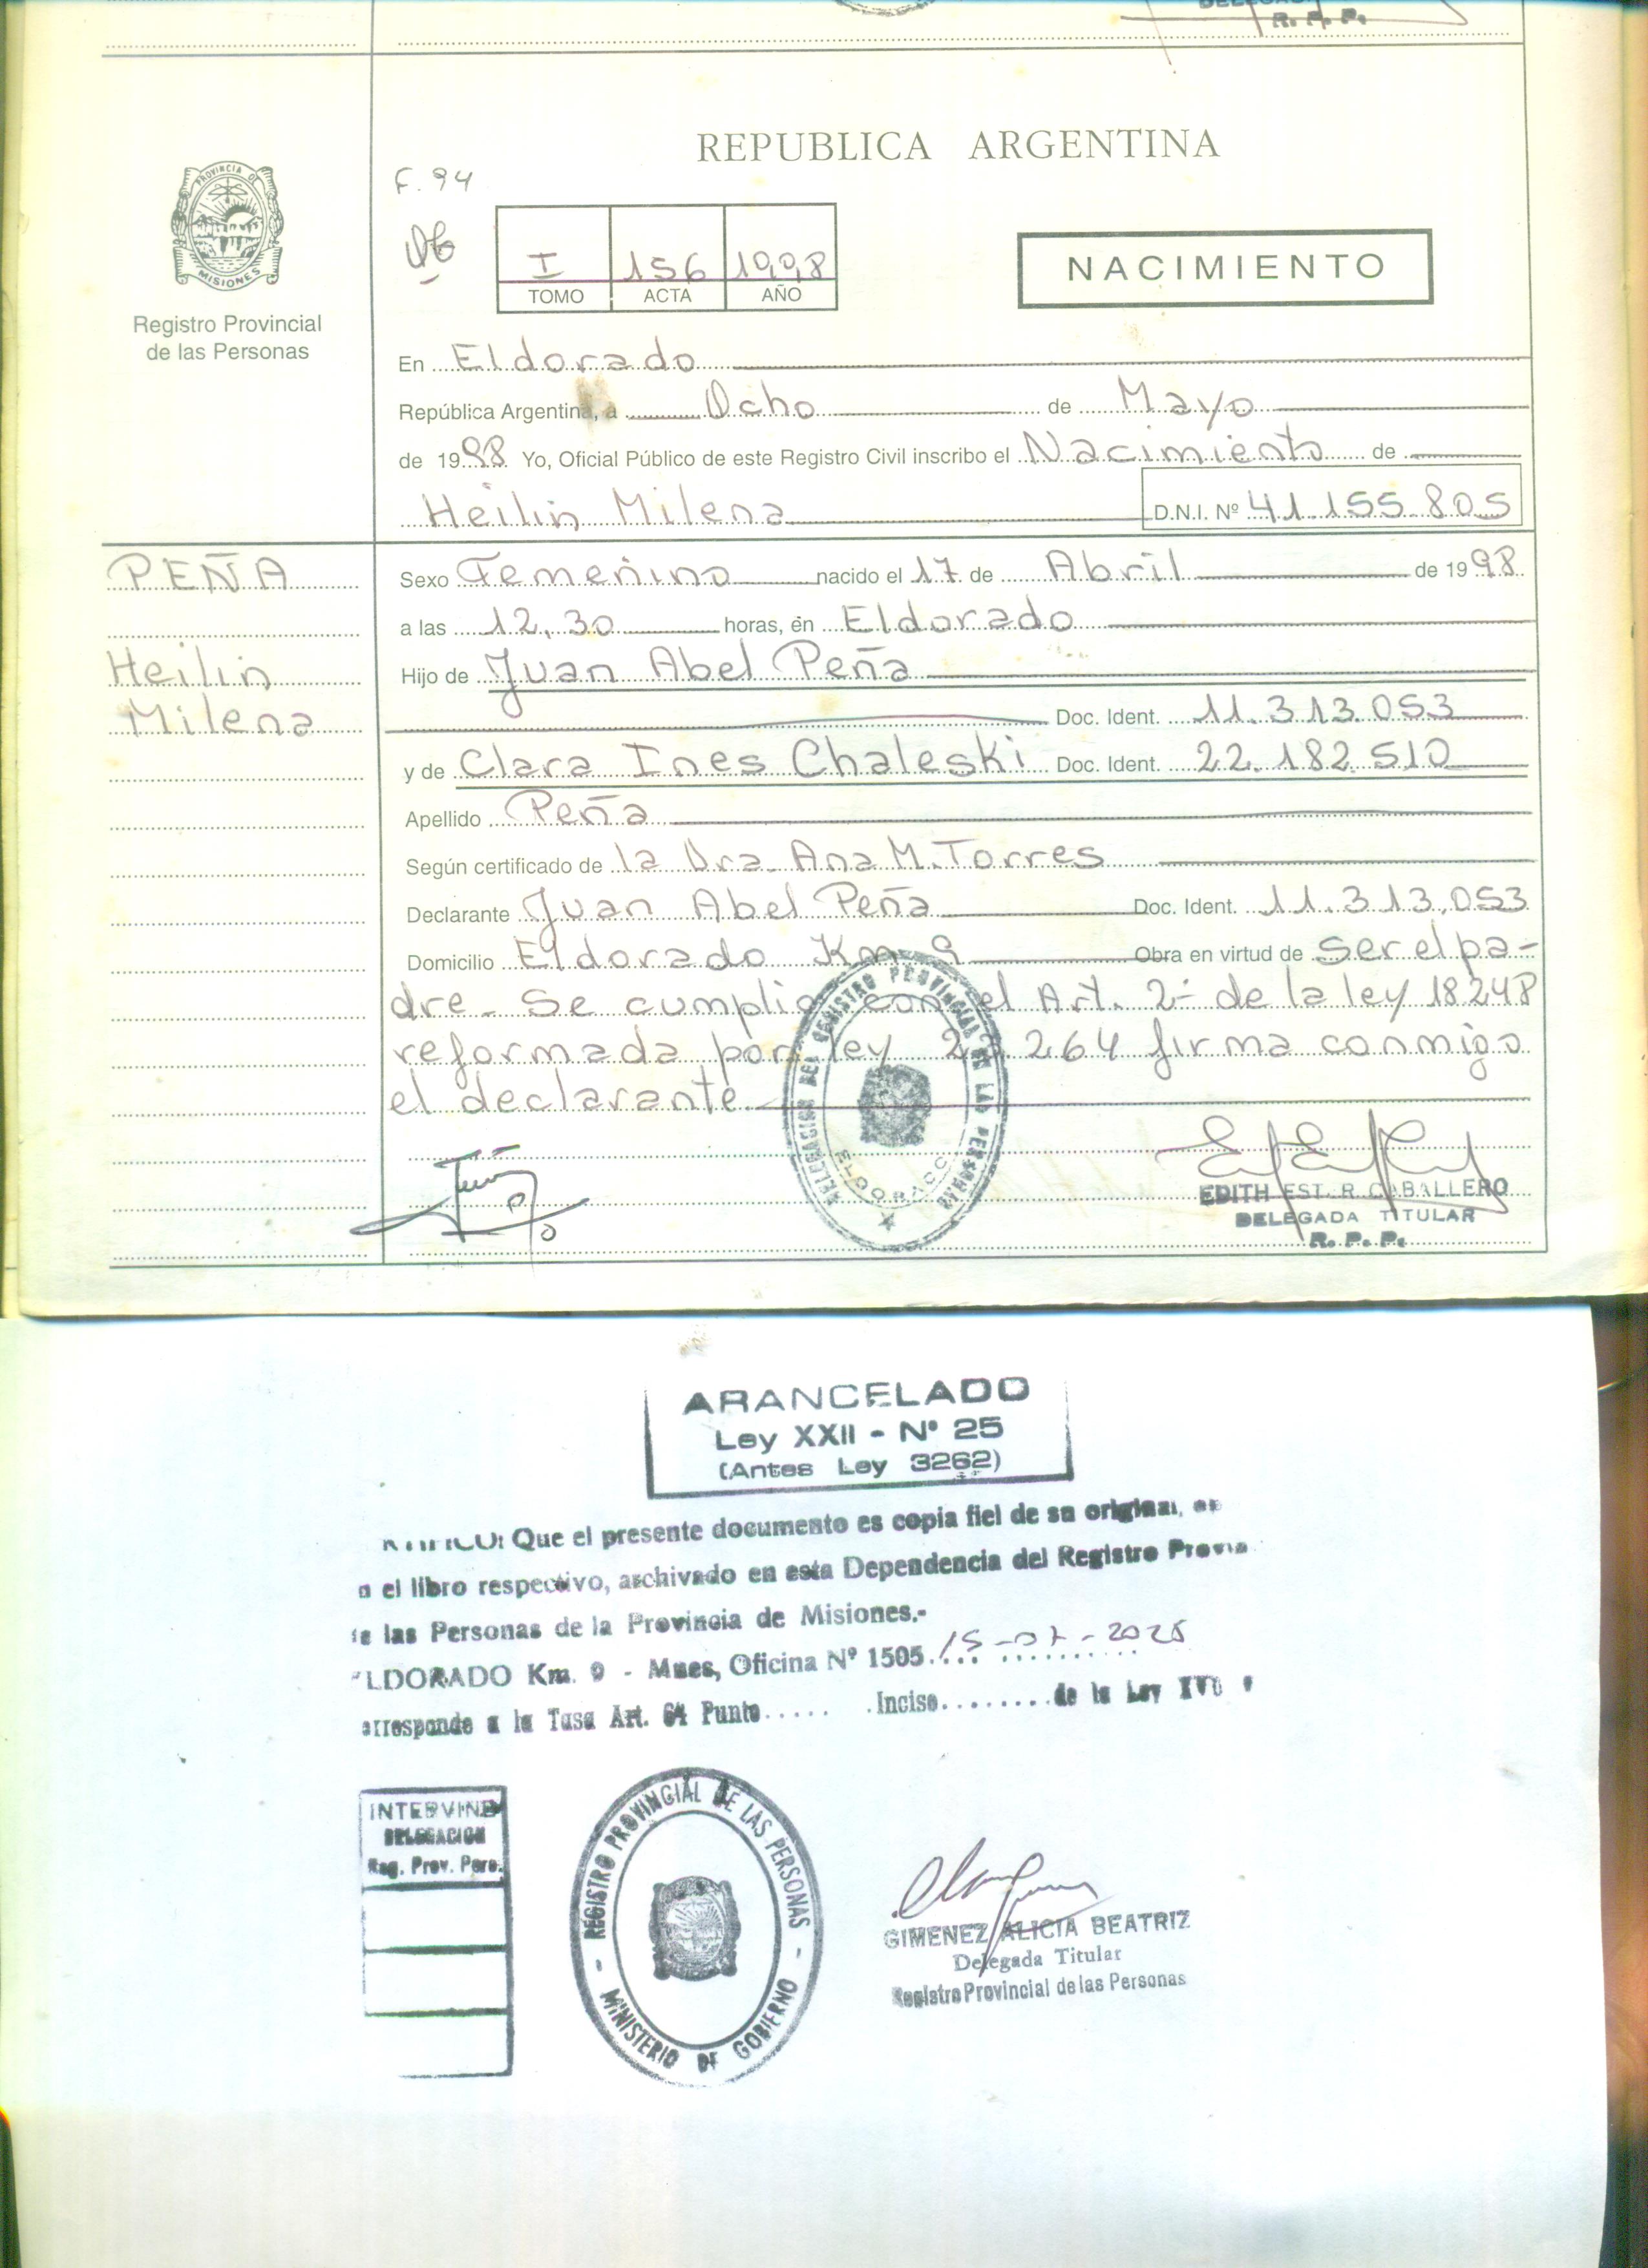 R. P. P.
REPUBLICA ARGENTINA
F. 94
PROVINCIA DE
MISIONES
Registro Provincial
de las Personas
I 156 1998
TOMO ACTA AÑO
NACIMIENTO
En Eldorado
República Argentina, a Ocho de Mayo
de 1998 Yo, Oficial Público de este Registro Civil inscribo el Nacimiento de
Heilin Milena D.N.I. Nº 41.155.805
PEÑA
Heilin
Milena
Sexo Femenino nacido el 17 de Abril de 1998
a las 12,30 horas, en Eldorado
Hijo de Juan Abel Peña
Doc. Ident. 11.313.053
y de Clara Ines Chaleski Doc. Ident. 22.182.510
Apellido Peña
Según certificado de la Dra. Ana M. Torres
Declarante Juan Abel Peña Doc. Ident. 11.313.053
Domicilio Eldorado Km 9 Obra en virtud de ser el pa-
dre. Se cumplio con el Art. 2º de la ley 18248
reformada por ley 23.264 firma conmigo
el declarante.
DELEGACION DEL REGISTRO PROVINCIAL DE LAS PERSONAS
ELDORADO
EDITH ESTER CABALLERO
DELEGADA TITULAR
R. P. P.
ARANCELADO
Ley XXII - Nº 25
(Antes Ley 3262)
Que el presente documento es copia fiel de su original,
el libro respectivo, archivado en esta Dependencia del Registro
las Personas de la Provincia de Misiones.-
LDORADO Km. 9 - Mnes, Oficina Nº 1505 15-07-2025
a la Tasa Art. 64 Punto..... .Inciso........de la Ley
INTERVINE
DELEGACION
Reg. Prov. Pers.
REGISTRO PROVINCIAL DE LAS PERSONAS
MINISTERIO DE GOBIERNO
GIMENEZ ALICIA BEATRIZ
Delegada Titular
Registro Provincial de las Personas